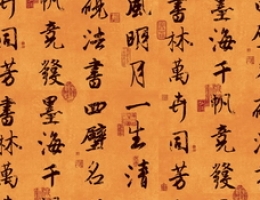 墨海千帆竞發
書林萬卉同芳
風明月一生清
硯法書四壁名
竞發墨海千帆
卉同芳書林萬